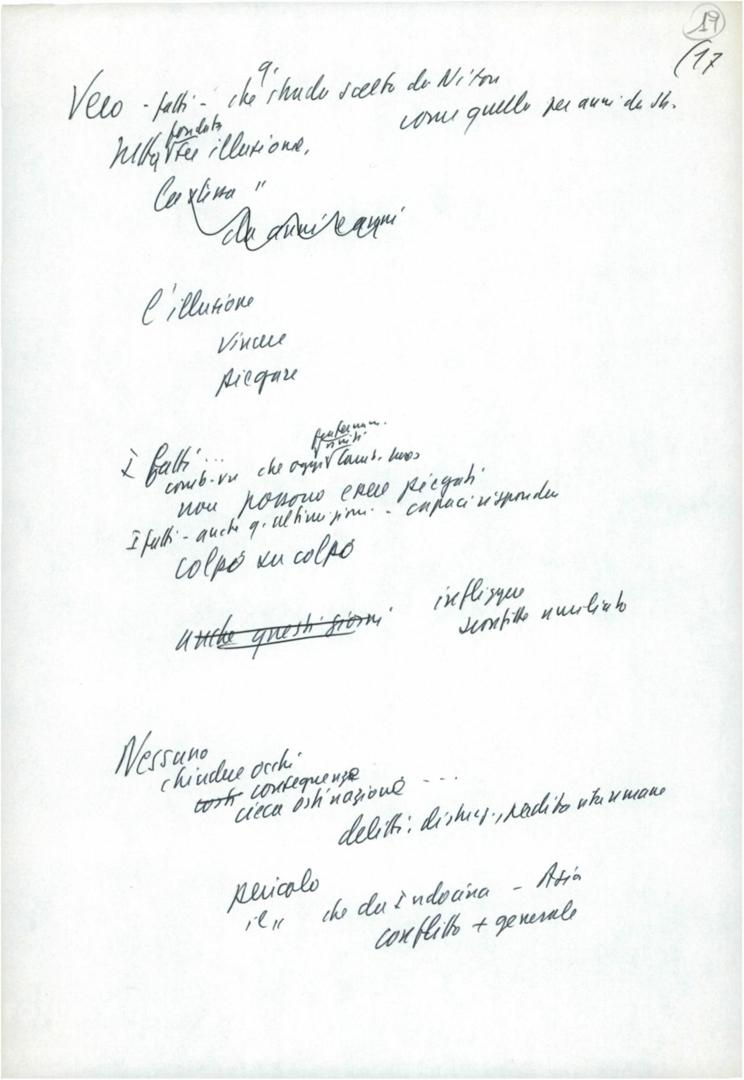 19
(17
q.
Vero - fatti - che strada scelta da Nixon
come quella per anni da
fondata
illusione,
"
da anni e anni
l'illusione
vincere
piegare
I fatti...
comb. vn che oggi comb. laos
non possono essere piegati
I fatti - anche q. ultimi giorni - capaci rispondere
colpo su colpo
anche questi giorni
infliggere
sconfitte umilianti
Nessuno
chiudere occhi
costi conseguenze
cieca ostinazione ...
delitti, distruz., perdita vite umane
pericolo
il " che da Indocina - Asia
conflitto + generale